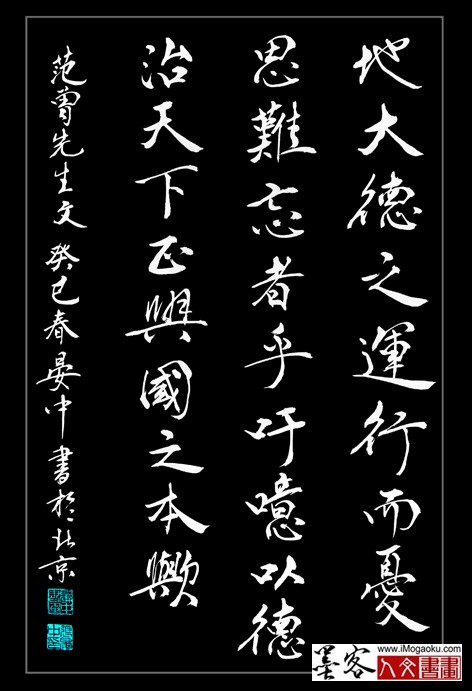 地大德之運行而憂
思難忘者乎吁噫以德
治天下正興國之本歟
范曾先生文 癸巳春晏中書於北京
墨客 www.iMogaoku.com
人文書畫